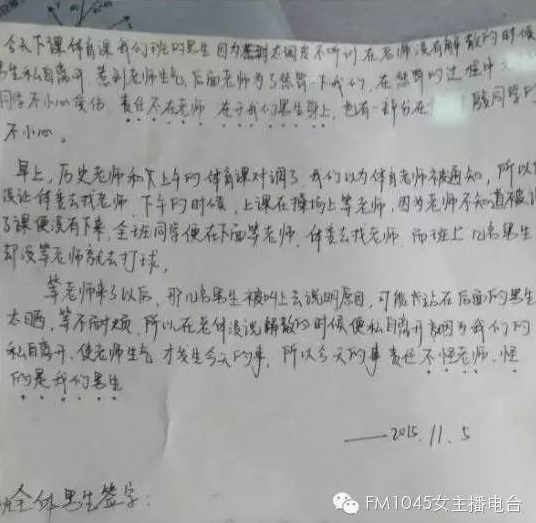 今天下课体育课我们班的男生因为太调皮不听训,在老师没有解散的时候
男生私自离开,惹到老师生气,后面老师为了惩罚一下我们,在惩罚的过程中
同学不小心受伤,责任不在老师,在于我们男生身上,也有一部分在 同学的
不小心。
早上,历史老师和下午的体育课对调了,我们以为体育老师被通知,所以
没让体委去找老师,下午的时候,上课在操场上等老师,因为老师不知道被调
了课便没有下来,全班同学便在下面等老师,体委去找老师,而班上几名男生
却没等老师就去打球,
等老师来了以后,那几名男生被叫上去说明原因,可能我站在后面的男生
太晒,等不耐烦,所以在老师没说解散的时候便私自离开,因为我们的
私自离开,使老师生气,才发生今天的事,所以今天的事责任不怪老师,怪
的是我们男生
——2015.11.5
全体男生签字:
FM1045女主播电台